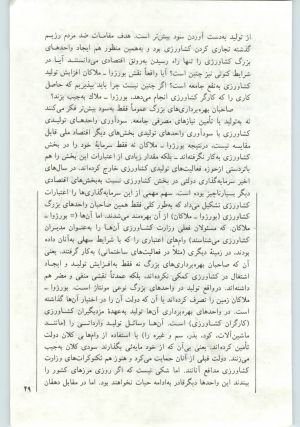 از تولید به‌دست آوردن سود بیش‌تر است. هدف مقامات ضد مردم رژیم
گذشته تجاری کردن کشاورزی بود و به‌همین منظور هم ایجاد واحدهای
بزرگ کشاورزی را تنها راه رسیدن به‌رونق اقتصادی می‌دانستند. آیا در
شرایط کنونی نیز چنین است؟ آیا واقعاً نقش بورژوا ـ ملاکان افزایش تولید
کشاورزی به‌نفع جامعه است؟ اگر چنین نیست چرا باید بپذیریم که حاصل
کاری را که کارگر کشاورزی انجام می‌دهد، بورژوا ـ ملاک به‌جیب بزند؟
صاحبان بهره‌برداری‌های بزرگ عموماً فقط به‌سود بیش‌تر فکر می‌کنند
نه به‌تولید یا تأمین نیازهای مصرفی جامعه. سودآوری واحدهای تولیدی
کشاورزی با سودآوری واحدهای تولیدی بخش‌های دیگر اقتصاد ملی قابل
مقایسه نیست، درنتیجه بورژوا ـ ملاکان نه فقط سرمایهٔ خود را در بخش
کشاورزی به‌کار نگرفته‌اند، بلکه مقدار زیادی از اعتبارات این بخش را هم
بااتر‌دستی ازحوزه فعالیت‌های تولیدی کشاورزی خارج کرده‌اند. در سال‌های
اخیر سرمایه‌گذاری دولتی در بخش کشاورزی نسبت به‌بخش‌های اقتصادی
دیگر بسیارناچیز بوده است. سهم مهمی از این سرمایه‌گذاری‌ها را اعتبارات
کشاورزی تشکیل می‌داد که به‌طور کلی فقط همین صاحبان واحدهای بزرگ
کشاورزی (بورژوا ـ ملاکان) از آن بهره‌مند می‌شدند. اما آن‌ها (= بورژوا ـ
ملاکان، که مسئولان فعلی وزارت کشاورزی آن‌ها را به‌عنوان مدیران
کشاورزی می‌شناسند) وام‌های اعتباری را که با شرایط سهلی به‌آنان داده
بودند، در زمینهٔ دیگری (مثلاً در فعالیت‌های ساختمانی) به‌کار گرفتند. یعنی
آن که صاحبان بهره‌برداری‌های بزرگ نه فقط به‌افزایش تولید و ایجاد
اشتغال در کشاورزی کمکی نکرده‌اند، بلکه عمدتاً نقشی منفی و مضر هم
داشته‌اند. درواقع تولید در واحدهای بزرگ نوعی مونتاژ است. بورژوا ـ
ملاکان زمین را تصرف کرده‌اند یا آن که دولت آن را در اختیار آن‌ها گذاشته
است. در واحدهای بهره‌برداری آن‌ها تولید به‌عهدهٔ مزدبگیران کشاورزی
(کارگران کشاورزی) است. آن‌ها وسائل تولید وارداتی را (مانند
ماشین‌آلات، کود، بذر، سم و غیره) را با استفاده از وام‌های کلان دولت
تأمین کرده‌اند، یعنی بی‌آن که از خود مایه‌ئی بگذارند. سودی کلان به‌جیب
می‌زنند. دولت قبلی از آنان حمایت می‌کرد و هنوز هم تکنوکرات‌های وزارت
کشاورزی مدافع آنانند. اما شکی نیست که اگر روزی مرزهای کشور را
ببندند این واحدها دیگرقادر به‌ادامه حیات نخواهند بود. اما در مقابل دهقان
۲۹